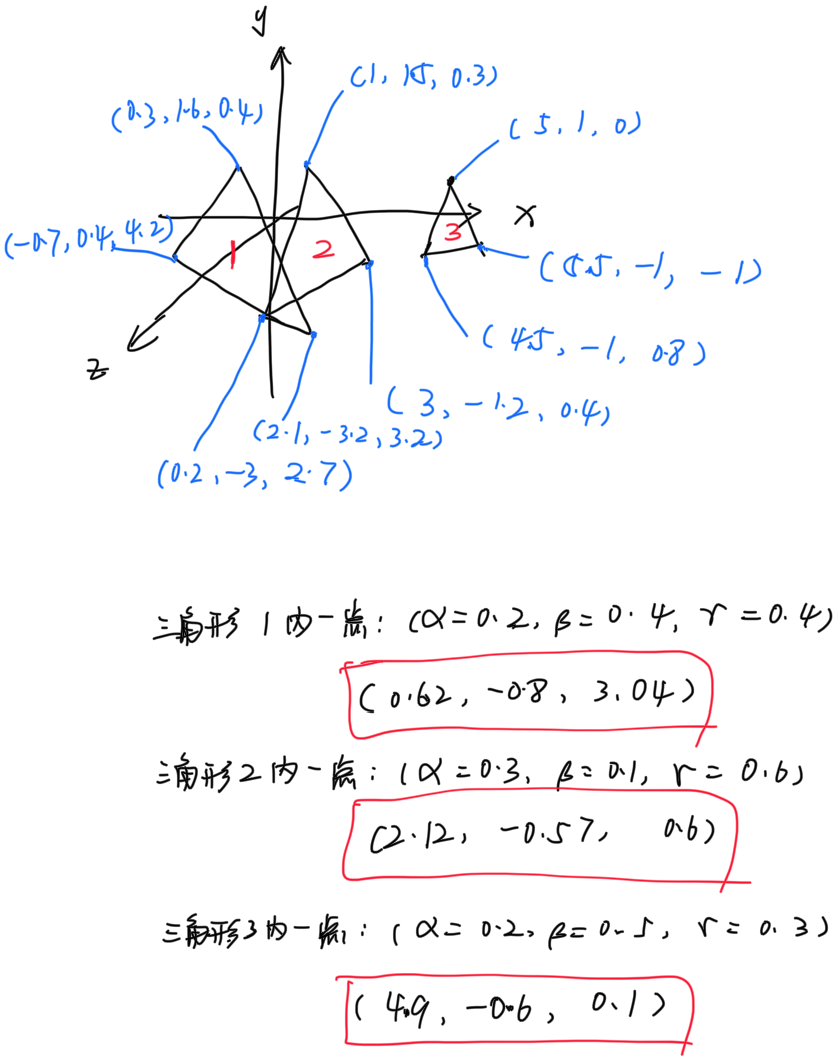 y
(1, 1.5, 0.3)
(0.3, 1.6, 0.4)
(5, 1, 0)
x
(-0.7, 0.4, 4.2)
1
2
3
(5.5, -1, -1)
(4.5, -1, 0.8)
z
(3, -1.2, 0.4)
(2.1, -3.2, 3.2)
(0.2, -3, 2.7)
三角形 1 内一点: (α=0.2, β=0.4, r=0.4)
(0.62, -0.8, 3.04)
三角形 2 内一点: (α=0.3, β=0.1, r=0.6)
(2.12, -0.57, 0.6)
三角形 3 内一点: (α=0.2, β=0.5, r=0.3)
(4.9, -0.6, 0.1)